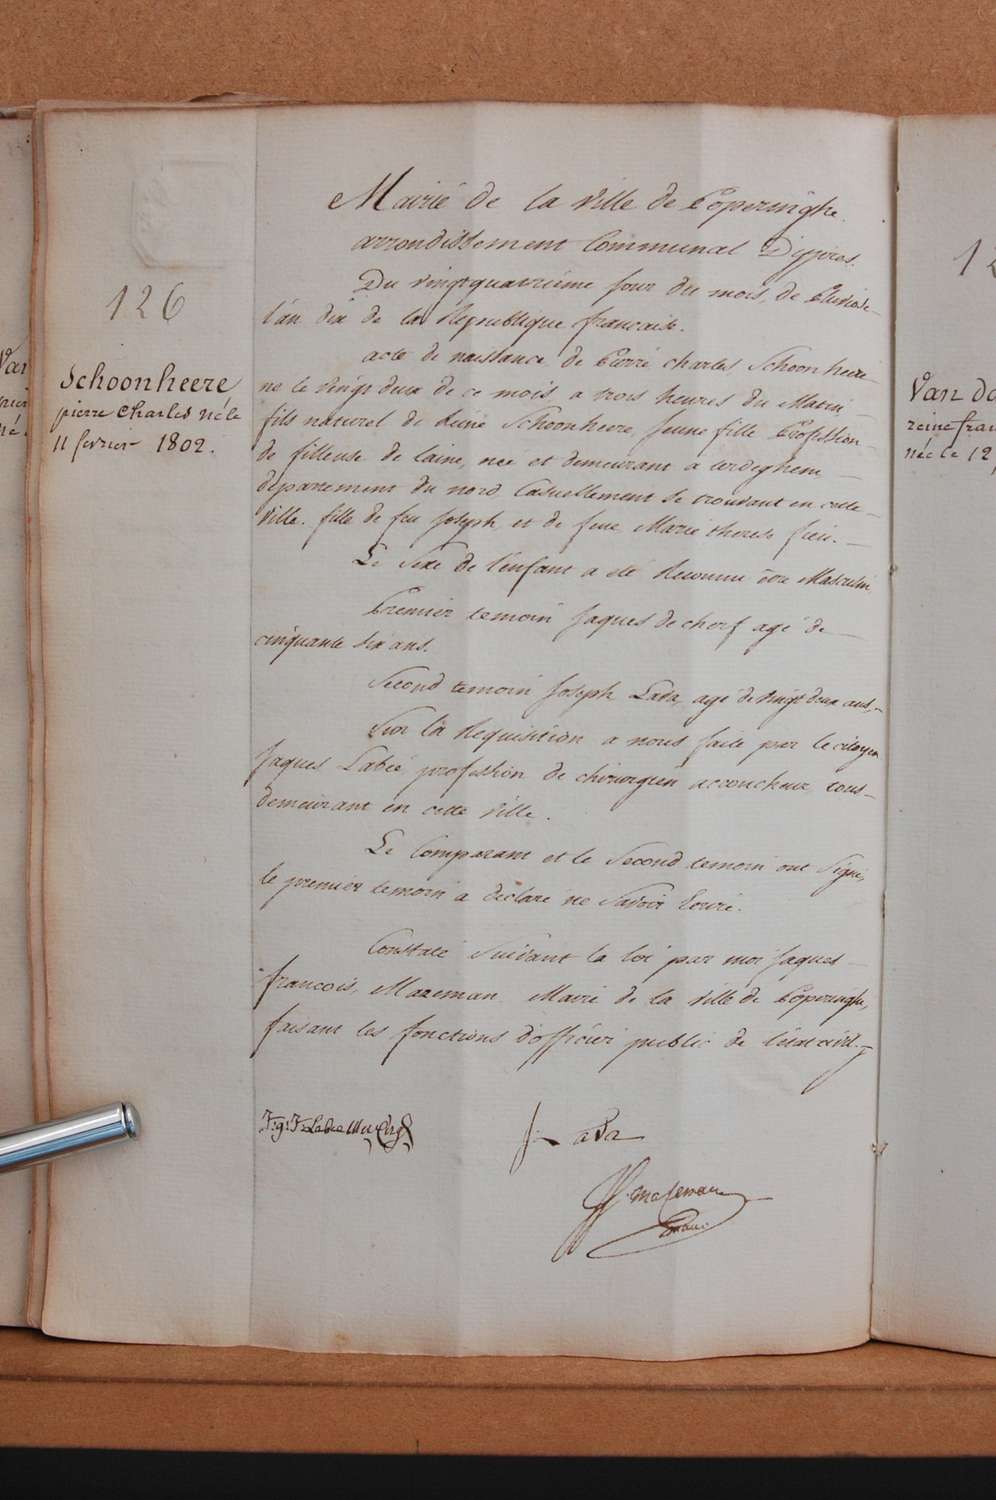 126
Schoonheere
pierre Charles né le
11 fevrier 1802.
Mairie de la Ville de Poperinghe
arrondissement Communal D'ypres.
Du vingtquatrieme jour du mois de Pluviose
l'an dix de la Republique francaise.
acte de naissance de Pierre charles Schoonheere
né le vingt deux de ce mois a trois heures du Matin
fils naturel de Reine Schoonheere, Jeune fille Profession
de filleuse de laine, née et demeurant a terdeghem
departement du nord Casuellement se trouvant en cette
Ville. fille de feu Joseph et de feue Marie therese
Le Sexe de l'enfant a été Reconnu être Masculin
Premier temoin Jaques de cherf agé de
cinquante six ans.
Second temoin Joseph Lada, agé de vingt deux ans,
Sur la Requisition a nous faite par le citoyen
Jaques Labée profession de chirurgien accoucheur tous
demeurant en cette ville.
Le Comparant et le Second temoin ont Signé,
le premier temoin a declaré ne Savoir Ecrire.
Constaté Suivant la loi par moi Jaques
francois, Mazeman Maire de la Ville de Poperinghe,
faisant les fonctions d'officier public de l'état civil.
J: g: F Labee
J: Lada
Mazeman
Van
né
12
Van
reine
née le 12